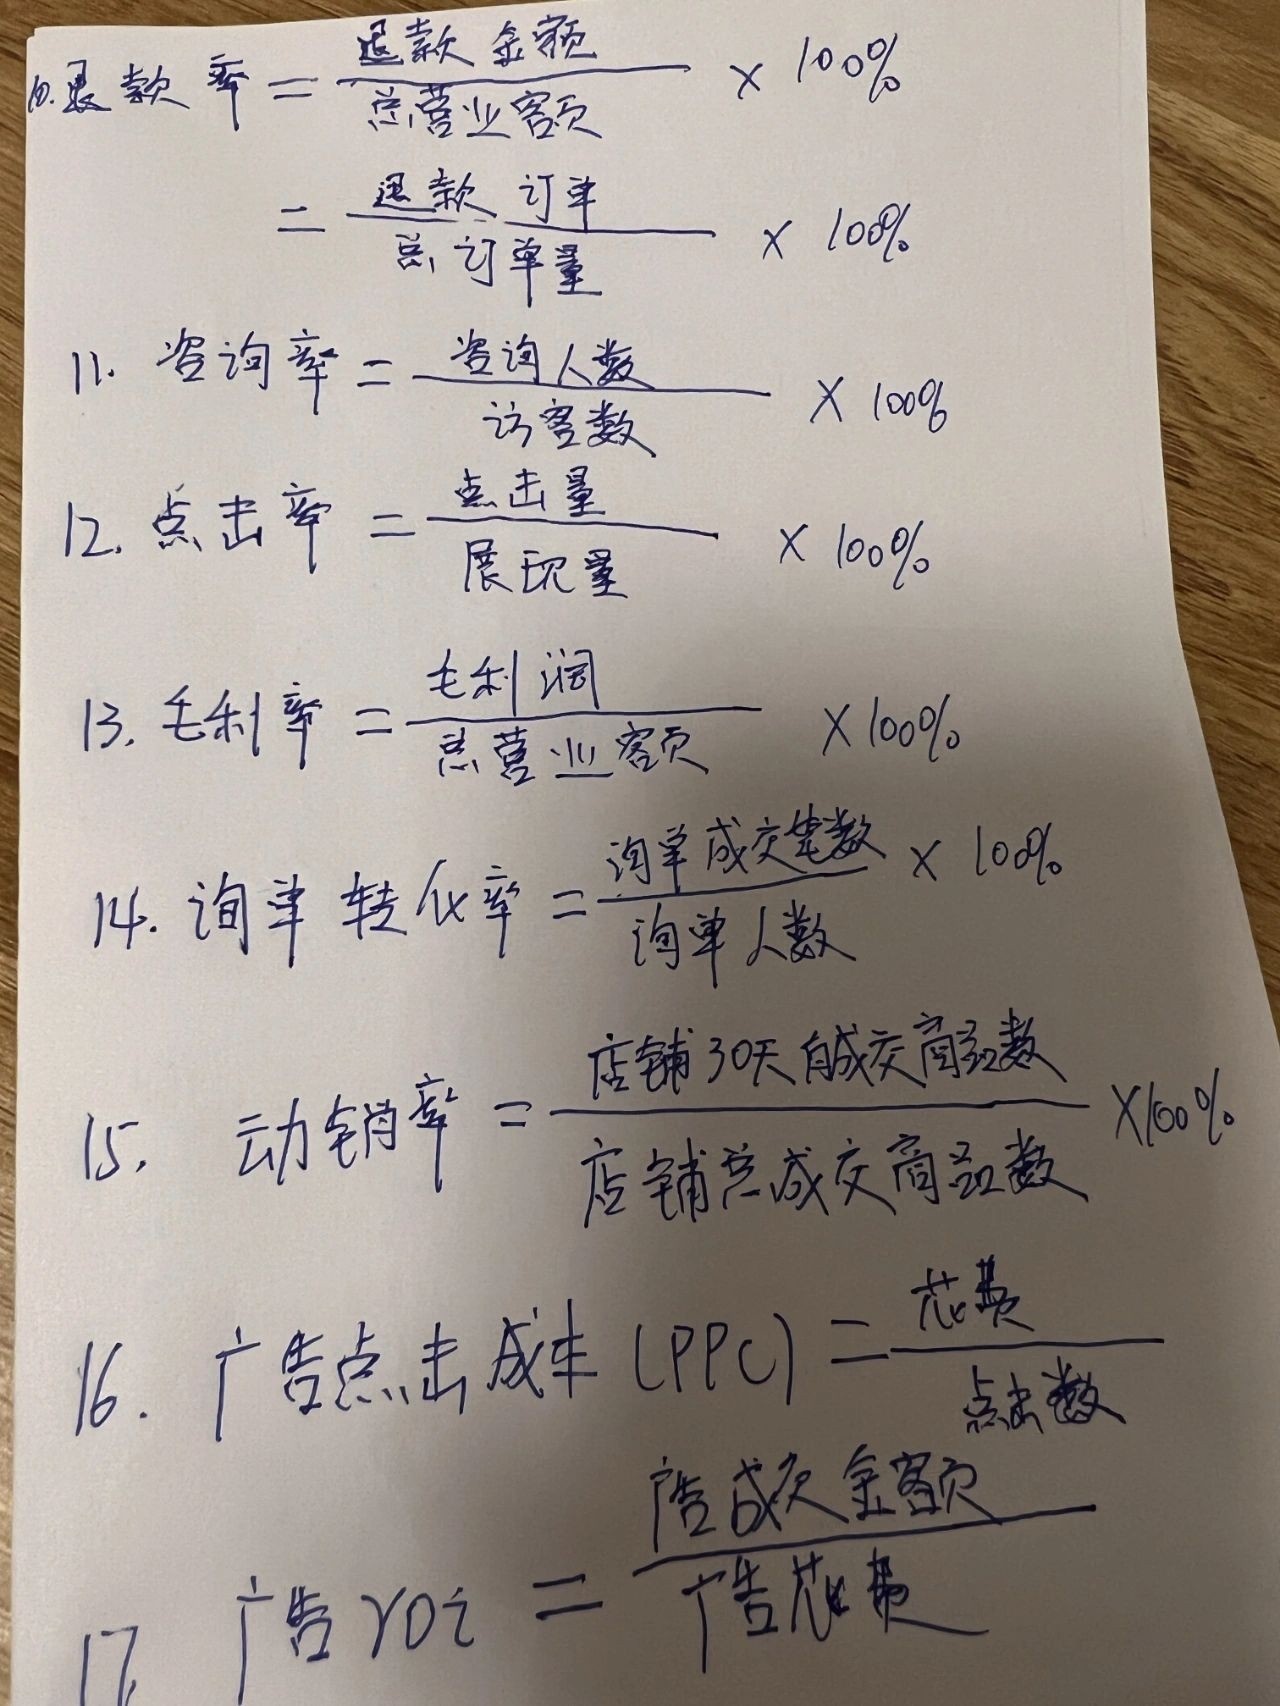 10. 退款率 = 退款金额 / 总营业额 × 100%
= 退款订单 / 总订单量 × 100%
11. 咨询率 = 咨询人数 / 访客数 × 100%
12. 点击率 = 点击量 / 展现量 × 100%
13. 毛利率 = 毛利润 / 总营业额 × 100%
14. 询单转化率 = 询单成交笔数 / 询单人数 × 100%
15. 动销率 = 店铺30天有成交商品数 / 店铺总成交商品数 × 100%
16. 广告点击成本(PPC) = 花费 / 点击数
17 广告roi = 广告成交金额 / 广告花费